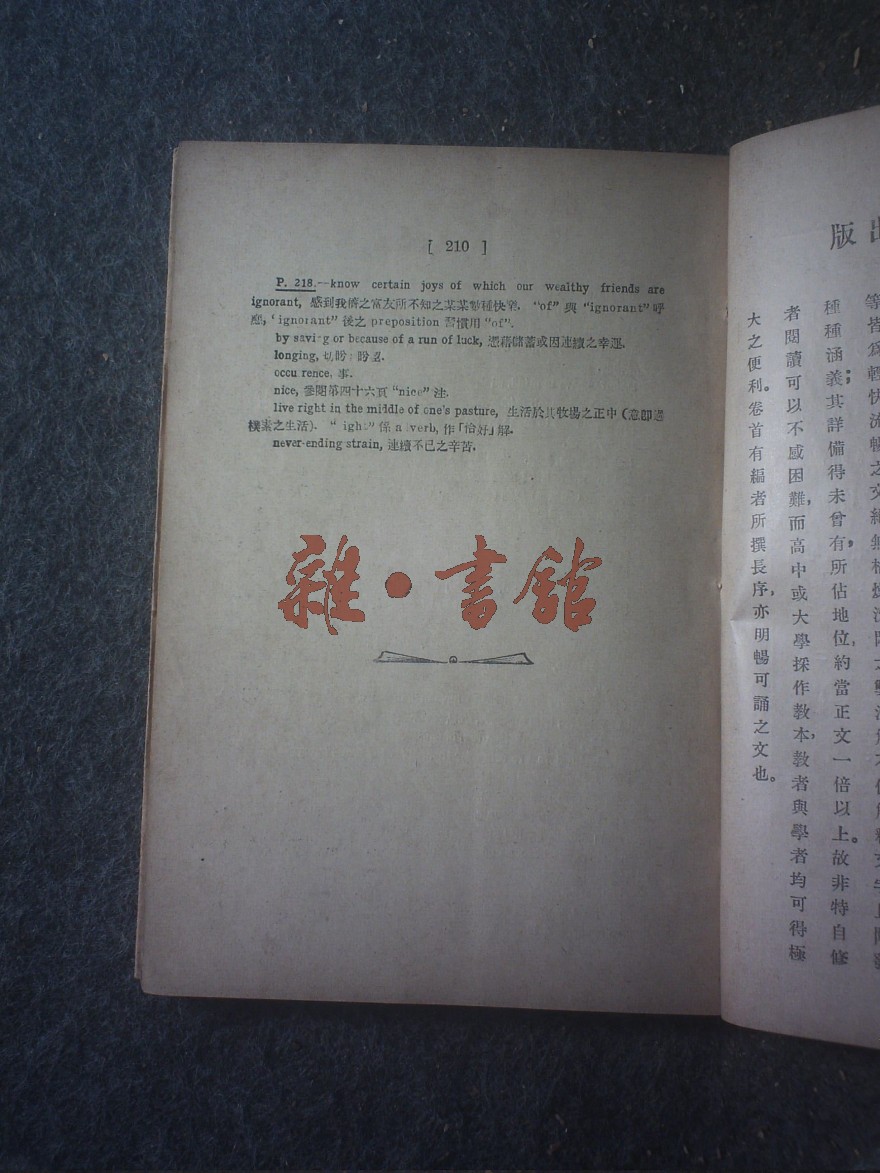 [ 210 ]
P. 218.—know certain joys of which our wealthy friends are
ignorant, 感到我儕之富友所不知之某某數種快樂. "of" 與 "ignorant" 呼
應, 'ignorant" 後之 preposition 習慣用 "of".
by saving or because of a run of luck, 憑藉儲蓄或因連續之幸運.
longing, 切盼; 盼望.
occu rence, 事.
nice, 參閱第四十六頁 "nice" 注.
live right in the middle of one's pasture, 生活於其牧場之正中 (意即過
樸素之生活). " ight" 係 a verb, 作「恰好」解.
never-ending strain, 連續不已之辛苦.
雜•書館
出版
種種涵義;其詳備得未曾有,所佔地位,約當正文一倍以上。故非特自修
者閱讀可以不感困難,而高中或大學採作教本,教者與學者均可得極
大之便利。卷首有編者所撰長序,亦明暢可誦之文也。